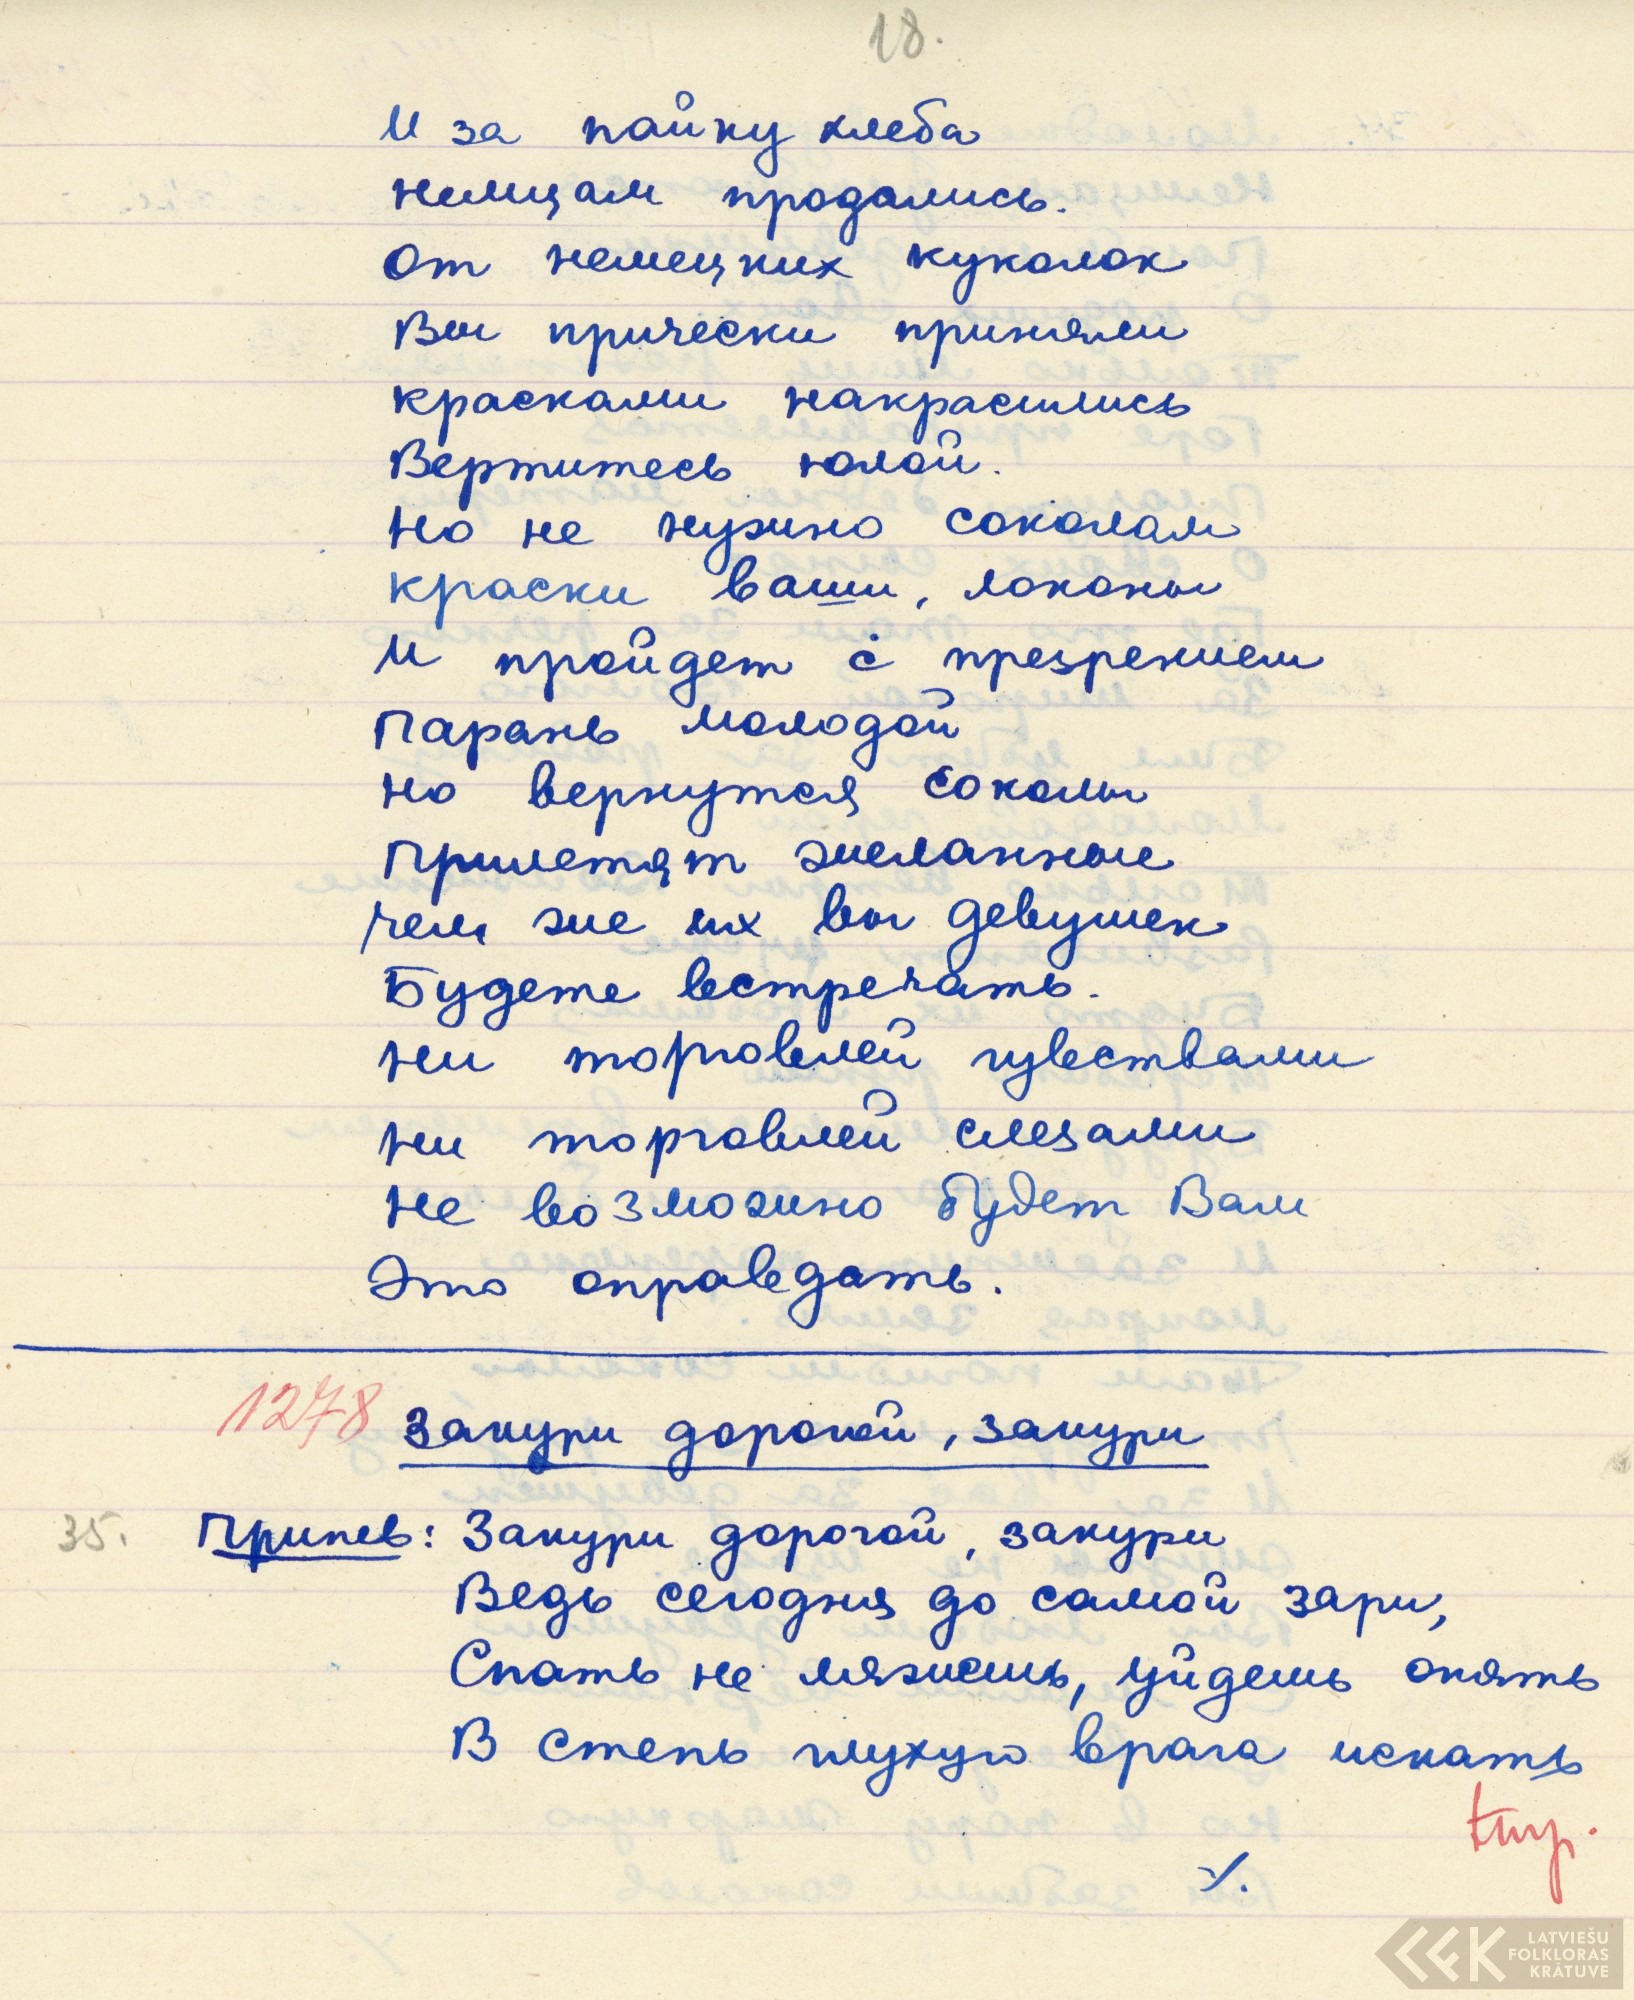 18.
И за пайку хлеба
немцам продались.
От немецких куколок
Вы прически приняли
красками накрасились
Вертитесь юлой.
но не нужно соколам
краски ваши, локоны
И пройдет с презрением
Парань молодой
но вернутся соколы
Прилетят желанные
чем же их вы девушек
Будете встречать.
ни торговлей чувствами
ни торговлей слезами
не возможно будет Вам
Это оправдать.
1278 Закури дорогой, закури
35. Припев: Закури дорогой, закури
Ведь сегодня до самой зари,
Спать не ляжешь, уйдешь опять
В степь глухую врага искать
./.
LATVIEŠU
FOLKLORAS
KRĀTUVE